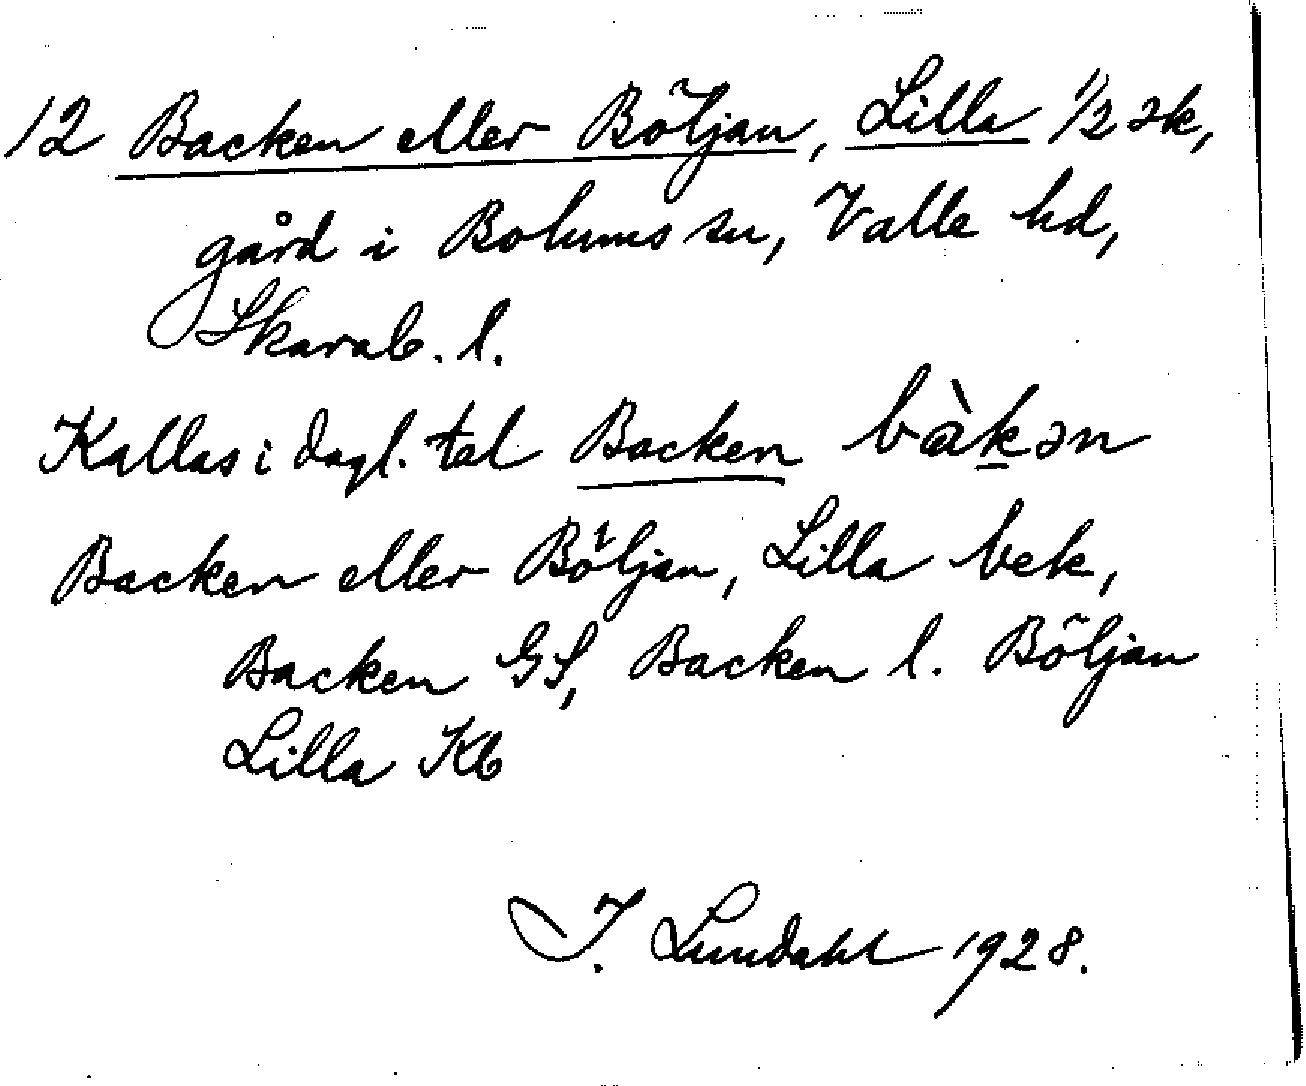 12 Backen eller Böljan, Lilla 1/2 sk,
gård i Bolums sn, Valle hd,
Skarab. l.
Kallas i dagl. tal Backen bàk̲ən
Backen eller Böljan, Lilla bek,
Backen GS, Backen l. Böljan
Lilla Kb
I. Lundahl 1928.